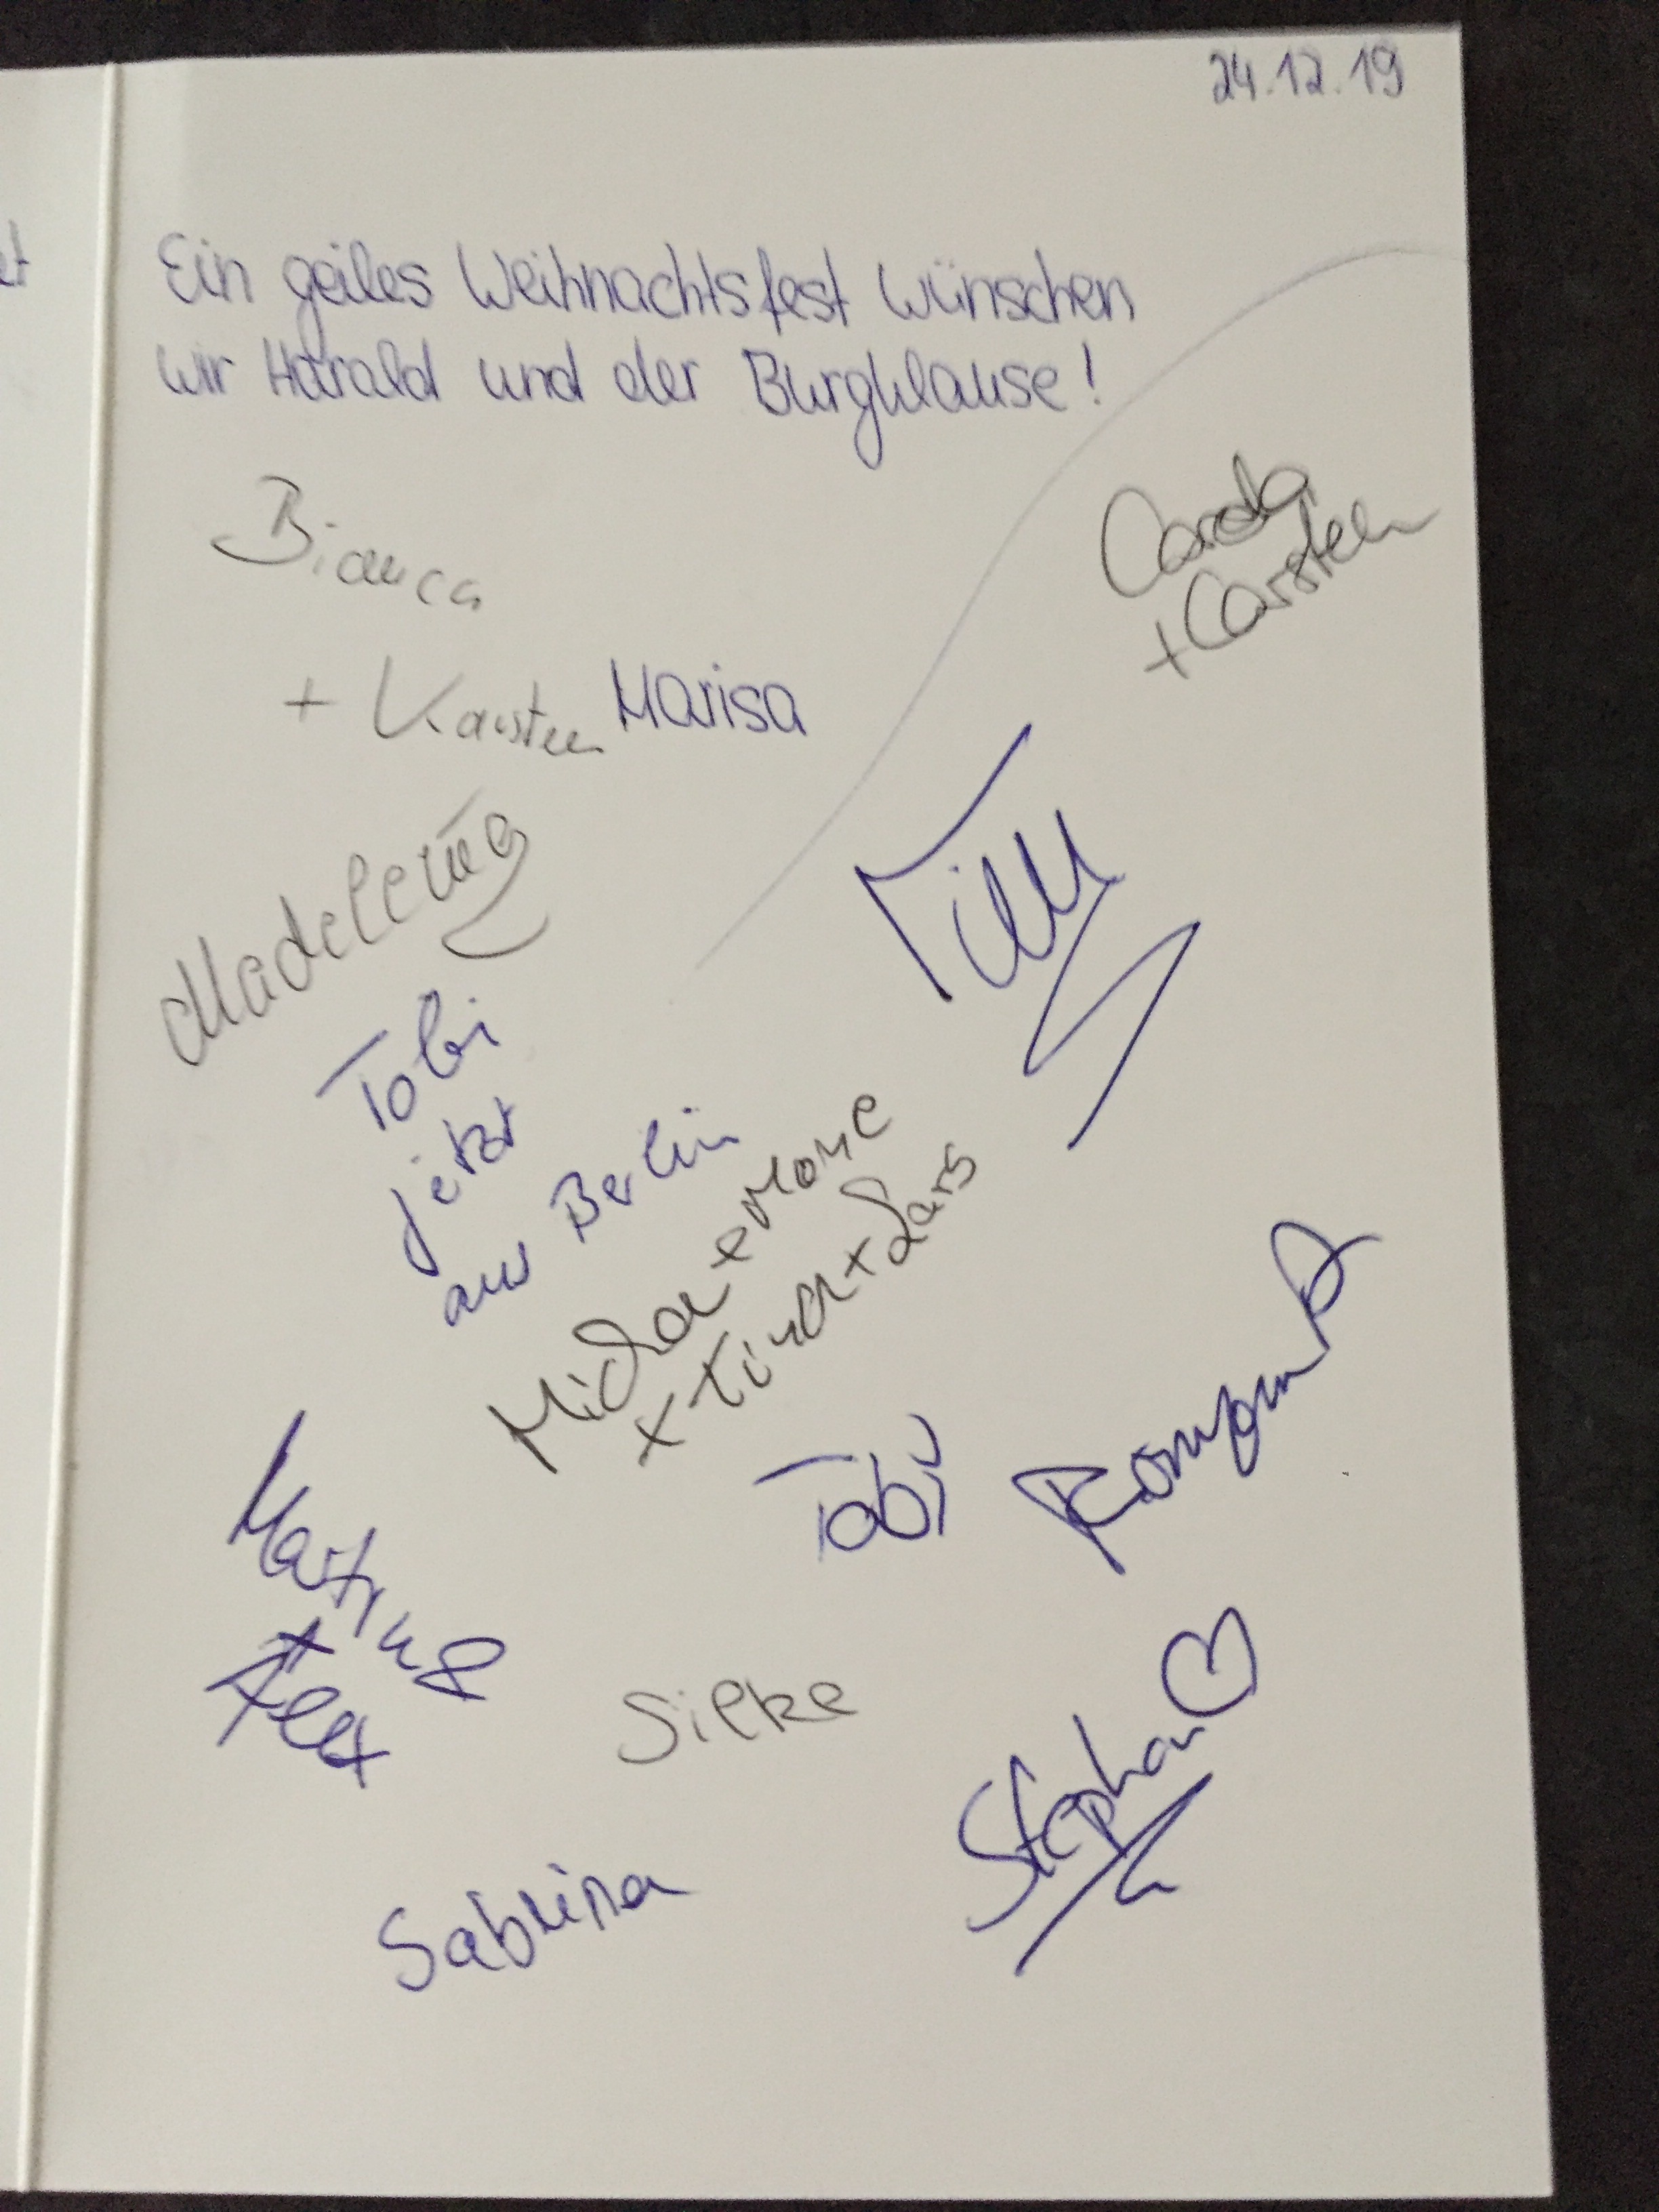 24.12.19
Ein geiles Weihnachtsfest wünschen
wir Harald und der Burgklause!
Bianca
+ Karsten
Marisa
Carola
+ Carsten
Madeleine
Till
Tobi
jetzt
aus Berlin
Micha + Mone
+ Tina + Lars
Tobi
Martina
Alex
Silke
Stephan
Sabrina